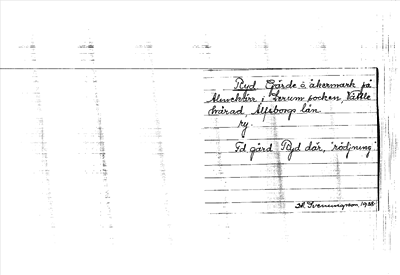 Ryd Gärde o åkermark på
Almekärr i Lerum socken, Vättle
härad, Älfsborgs län.
ry.
Fd gård Ryd där, 'rödjning'
1938